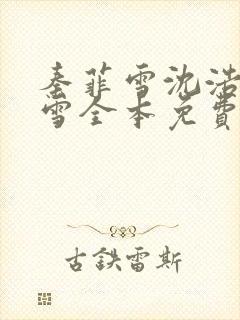 秦菲雪沈浩
雪全本免費
古鉄雷斯